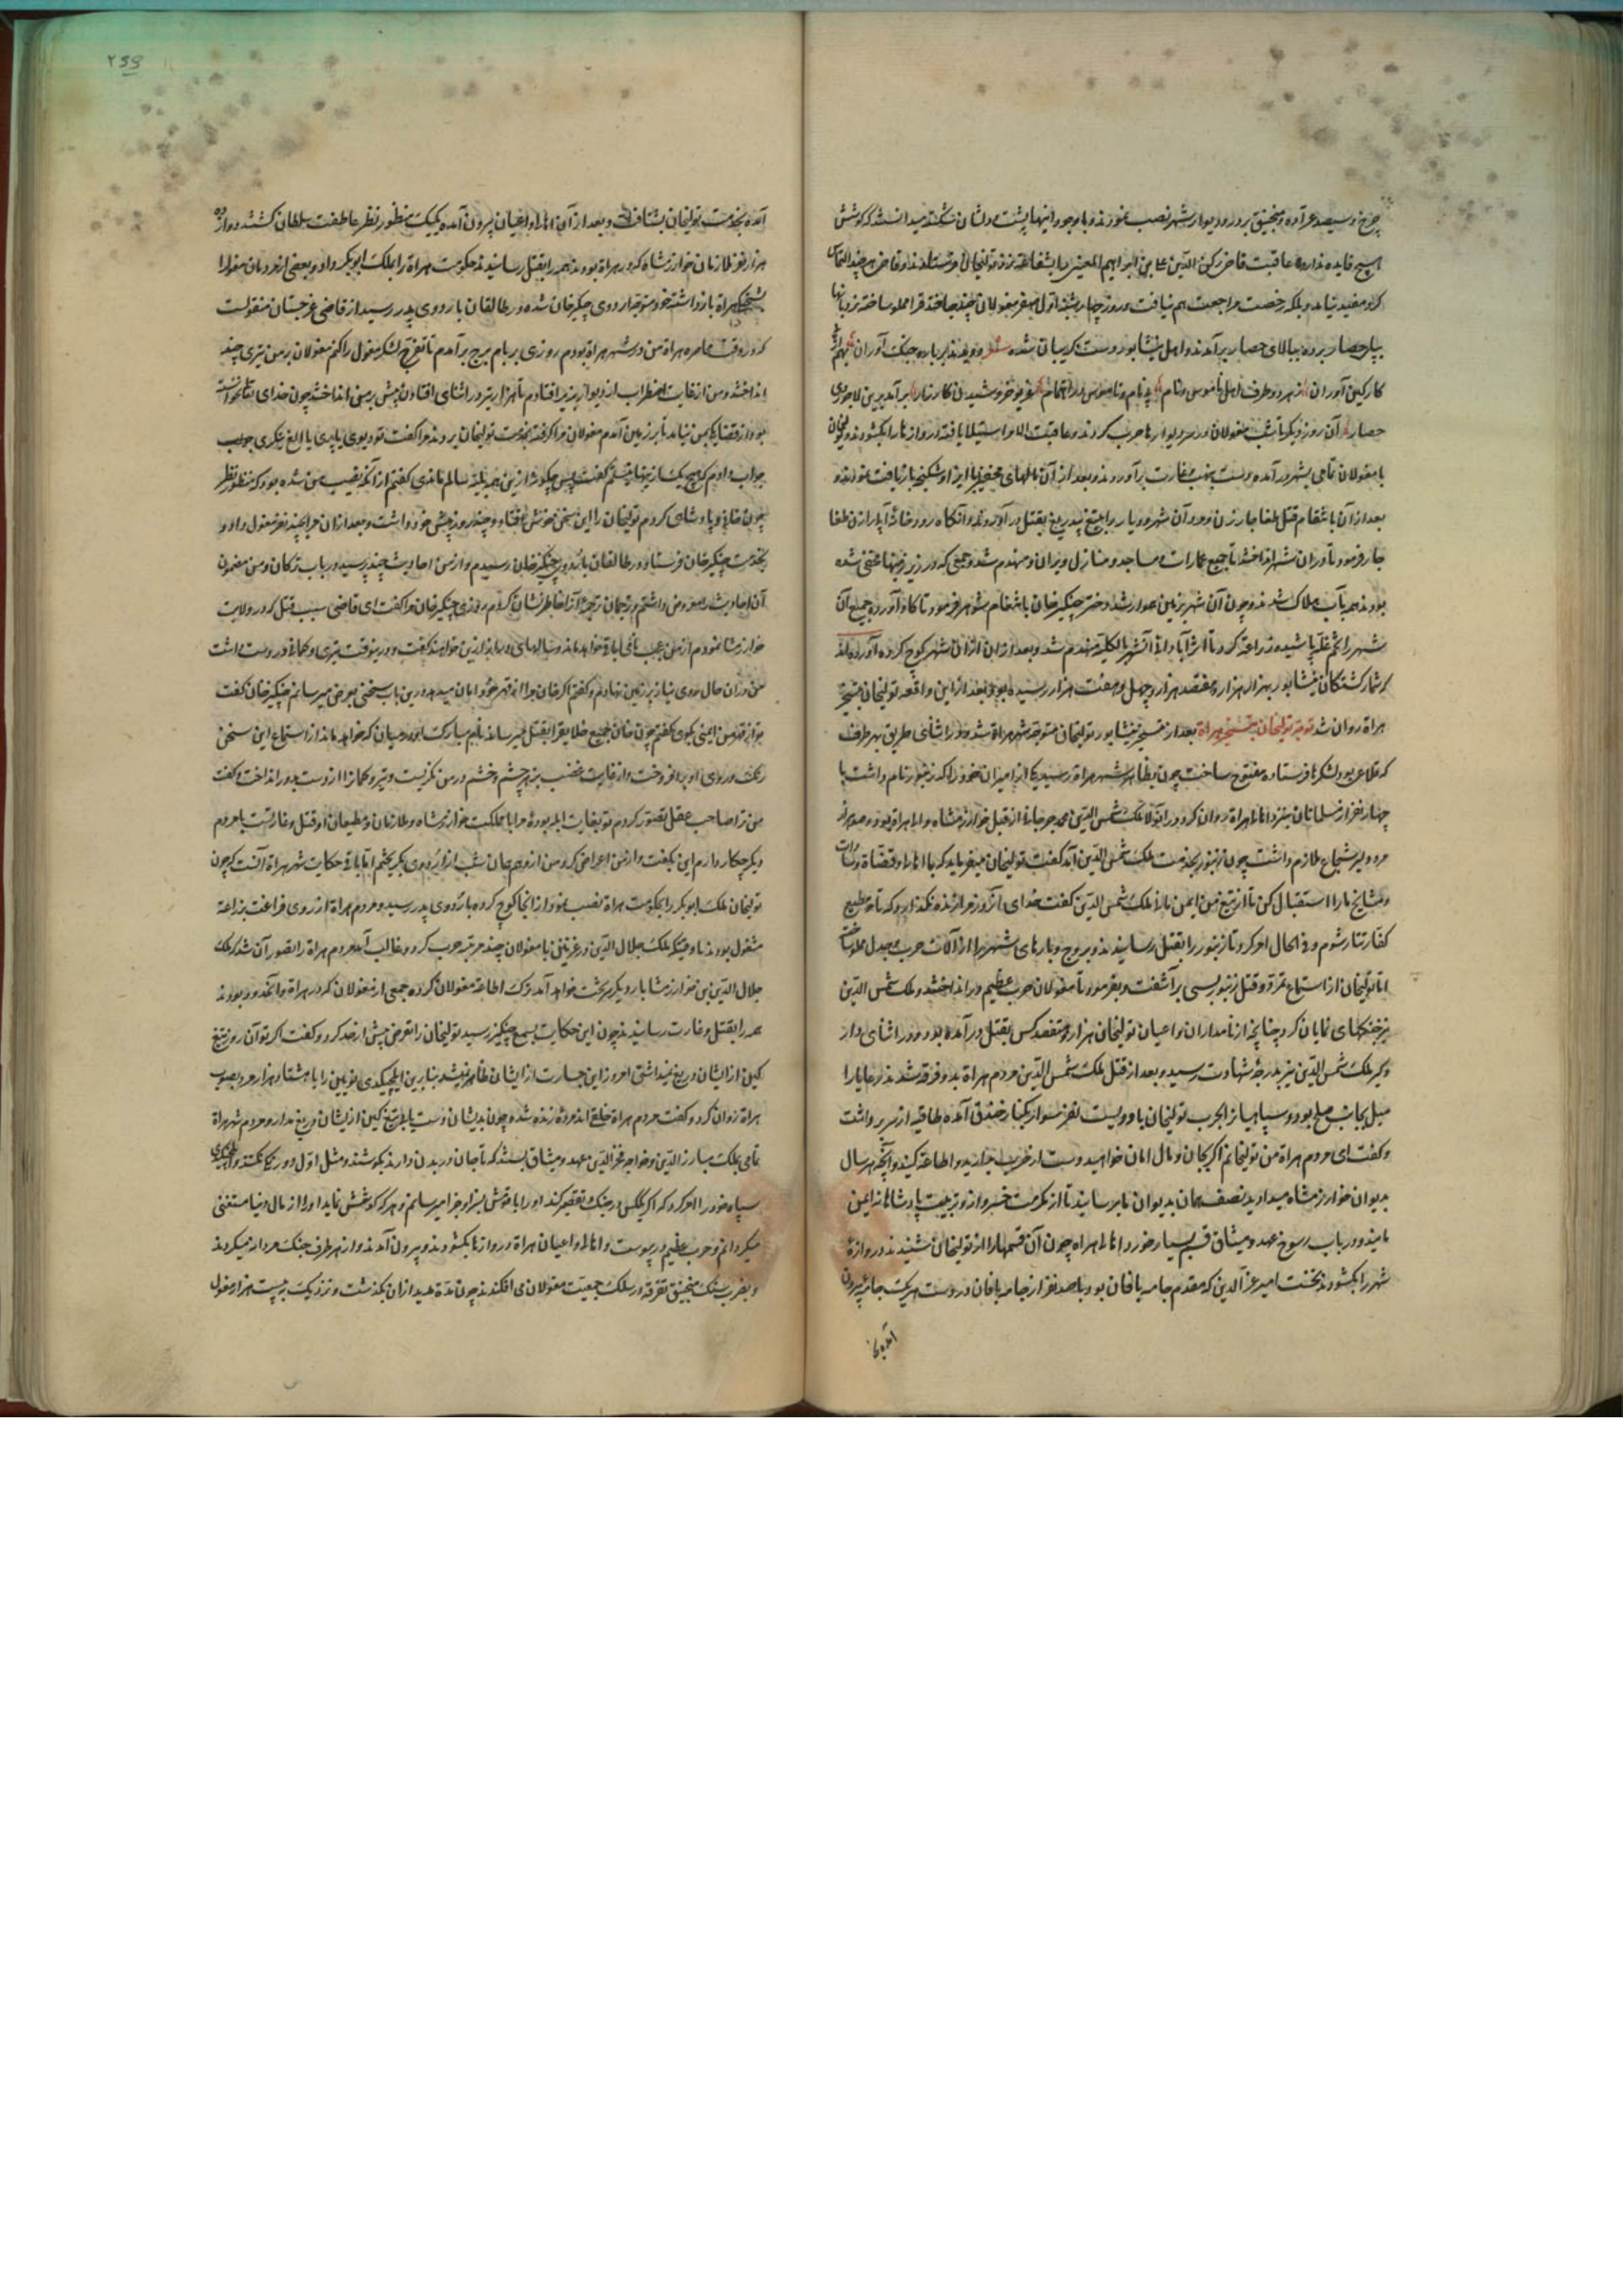 چرخ و سیصد عراده و منجنیق بر در و دیوار شهر نصب نمودند و با وجود اینها پشت و دلشان شکسته میدانستند که کوشش
هیچ فایده ندارد عاقبت قاضی رکن الدین علی بن ابراهیم المغیثی را بشفاعت نزد تولیخان فرستادند و قاضی هر چند التماس
کرد مفید نیامد و بلکه رخصت مراجعت هم نیافت و روز چهارشنبه اول صفر مغولان چند جا خندق را مملو ساخته نردبانها
بپای حصار برده ببالای حصار برآمدند و اهل نیشابور دست گریبان شده شعر دویدند بر باره جنگ آوران
کار کین آوران ز هر دو طرف اهل ناموس و نام پی نام و ناموس در اهتمام غریو خروشیدن کارزار برآمد برین لاجوردی
حصار آن روز دیگر تا شب مغولان در سر دیوارها حرب کردند و عاقبت الامر استیلا یافته دروازها را بگشودند و تولیخان
با مغولان تمامی بشهر در آمده دست بنهب و غارت برآوردند و بعد از آن مالهای مخفی را بایذا و شکنجه بازیافت نمودند و
بعد از آن بانتقام قتل طغاجار زن و مرد آن شهر و دیار را بتیغ بیدریغ بقتل در آوردند و آنگاه رودخانه آبرا از طغا
جار فرمود تا در آن شهر انداختند تا جمیع عمارات و مساجد و منازل ویران و منهدم شد و جمعی که در زیرزمینها مختفی شده
بودند همه بآب هلاک شدند و چون آن شهر بزمین هموار شد دختر چنگیز خان بانتقام شوهر فرمود تا گاو آورده جمیع آن
شهر را تخم غله پاشیده زراعت کردند تا اثر آبادانی آن شهر بالکلیه منهدم شد و بعد از آن از آن شهر کوچ کرده آورده‌اند
که شمار کشتکان نیشابور بهزار هزار و هفتصد هزار و چهل و هفت هزار رسیده بود و بعد از این واقعه تولیخان بتسخیر
هراة روان شد توجه تولیخان بتسخیر هراة بعد از تسخیر نیشابور تولیخان متوجه شهر هراة شد و در اثنای طریق بهر طرف
که قلاعی بود لشکرها فرستاده مفتوح ساخت چون بظاهر شهر هراة رسید یکی از امیران خود را که زنبور نام داشت با
چهار نفر از مسلمانان نیز نزد اهالی هراة روان کرد و در آنولا ملک شمس الدین محمد جوزجانی از قبل خوارزمشاه والی هراة بود و صد هزار
مرد دلیر شجاع ملازم داشت چون زنبور بخدمت ملک شمس الدین آمد گفت تولیخان میفرماید که با اهالی و قضاة و سادات
و مشایخ ما را استقبال کن تا از تیغ من ایمن باز ملک شمس الدین گفت خدای آنروز مرا زنده نگذارد که تابع و مطیع
کفار تتار شوم و فی الحال امر کرد تا زنبور را بقتل رسانیدند و بروج و بارهای شهر را از آلات حرب و جدل مملو ساخت
اما تولیخان از استماع تمرد و قتل زنبور بسی برآشفت و بفرمود تا مغولان حرب عظیم در انداختند و ملک شمس الدین
نیز جنگهای نمایان کرد چنانچه از نامداران و اعیان تولیخان هزار و هفتصد کس بقتل در آمده بود و در اثنای دار
و گیر ملک شمس الدین نیز بدرجه شهادت رسید و بعد از قتل ملک شمس الدین مردم هراة بدو فرقه شدند رعایا را
میل بجانب صلح بود و سپاهیانرا بحرب تولیخان با دویست نفر سوار بکنار خندق آمده طاقیه از سر برداشت
و گفت ای مردم هراة من تولیخانم اگر بجان و مال امان خواهید دست از حرب بدارید و اطاعت کنید و آنچه هر سال
بدیوان خوارزمشاه میدادید نصف همان بدیوان ما برسانید تا از مکرمت خسروانه و تربیت پادشاهانه ایمن
مانید و در باب رسوخ عهد و میثاق قسم بسیار خورد اهالی هراة چون آن قسمها را از تولیخان شنیدند دروازه
شهر را بگشودند نخست امیر عز الدین که مقدم جامه بافان بود با صد نفر از جامه بافان در دست هر یک جامه بیرون
آمده
۲۵۹
آمده بخدمت تولیخان بشتافت و بعد از آن اهالی و اعیان بیرون آمده یکیک منظور نظر عاطفت سلطان گشتند دوازده
هزار نفر ملازمان خوارزمشاه که در هراة بودند همه را بقتل رسانیدند حکومت هراة را بملک ابوبکر داد و بعضی از مردمان مغول را
بشحنگی هراة بازداشته خود متوجه اردوی چنگیز خان شده در طالقان باردوی پدر رسید از قاضی غرجستان منقولست
که در وقت محاصره هراة من در شهر هراة بودم روزی بر بام برج برآمدم تا تفرج لشکر مغول را کنم مغولان بر من تیری چند
انداختند و من از غایت اضطراب از دیوار بزیر افتادم تا هزار تیر در اثنای افتادن پیش بر من انداختند چون خدای تعالی نخواسته
بود از قضا یکی بمن نیامد تا بر زمین آمدم مغولان مرا گرفته بخدمت تولیخان بردند مرا گفت تو دیوی یا پری یا الغ تنگری
جواب دادم که هیچ یک از اینها نیستم گفت پس چگونه ازین همه بلیه سالم ماندی گفتم از آنکه نصیب من شده بود که منظور نظر
چون خانی و پادشاهی کردم تولیخان را این سخن خوش افتاد و چند روز پیش خود داشت و بعد از آن مرا بچند نفر مغول داد و
بخدمت چنگیز خان فرستاد و در طالقان باردوی چنگیز خان رسیدم و از من احادیث چند پرسید در باب ترکان و من مضمون
آن احادیث معروض داشتم و ترجمان ترجمه آنرا خاطرنشان کردم روزی چنگیز خان مرا گفت ای قاضی سبب قتل که در ولایت
خوارزمشاه نمودم از من عجب نامی باقی خواهد ماند و سالهای دراز ازین خواهند گفت و در ینوقت تیری و کمانی در دست داشت
من در آن حال روی نیاز بر زمین نهادم و گفتم اگر خان مرا از قهر خود امان میدهد درین باب سخنی بعرض میرسانم چنگیز خان گفت
تو از قهر من ایمنی بگوی گفتم چون خان جمیع خلایق را بقتل میرساند نام مبارکت در میان که خواهد ماند از استماع این سخن
رنگ و روی او برافروخت و از غایت غضب بزهر چشم و خشم در من نگریست و تیر و کمانرا از دست بدور انداخت و گفت
من ترا صاحب عقل تصور کردم تو بغایت ابله بودهٔ مرا با مملکت خوارزمشاه و ملازمان و مطیعان او قتل و غارتست با مردم
دیگر چکار دارم این بگفت و از من اعراض کرد و من از وهم جان شب از اردوی بگریختم اما باقی حکایت شهر هراة آنست که چون
تولیخان ملک ابوبکر را بحکومت هراة نصب نمود از آنجا کوچ کرده باردوی پدر رسید و مردم هراة از روی فراغت بزراعت
مشغول بودند تا وقتیکه ملک جلال الدین در غزنین با مغولان چند مرتبه حرب کرد و غالب آمد مردم هراة را تصور آن شد که ملک
جلال الدین بن خوارزمشاه بار دیگر بر تخت خواهد آمد ترک اطاعت مغولان کرده جمعی از مغولان که در هراة و آنحدود بودند
همه را بقتل و غارت رسانیدند چون این حکایت بسمع چنگیز رسید تولیخان را تعرض بیش از حد کرد و گفت اگر تو آن روز تیغ
کین از ایشان دریغ نمیداشتی امروز این جسارت از ایشان ظاهر نمیشد بنابرین ایلچیکدی نویین را با هشتاد هزار مرد بصوب
هراة روان کرد و گفت مردم هراة خلق اند مردهٔ زنده شده چون بدیشان دست یابی تیغ کین از ایشان دریغ مدار و مردم شهر هراة
تمامی بملک مبارز الدین و خواجه فخر الدین عهد و میثاق بستند که تا جان در بدن دارند بکوشند و مثل اول دو رنگ نگشتند و ایلچیکدی
سپاه خود را امر کرد که اگر یککس در جنگ تقصیر کند او را با قوشش بسزا و جزا میرسانم و هر که کوشش نماید او را از مال دنیا مستغنی
میگردانم و حرب عظیم در پیوست و اهالی و اعیان هراة دروازها بگشودند و بیرون آمدند و از هر طرف جنگ مردانه میکردند
و بضرب سنگ منجنیق تفرقه در سلک جمعیت مغولان می افکندند چون مدة مدید از آن بگذشت و نزدیک به بیست هزار مغول